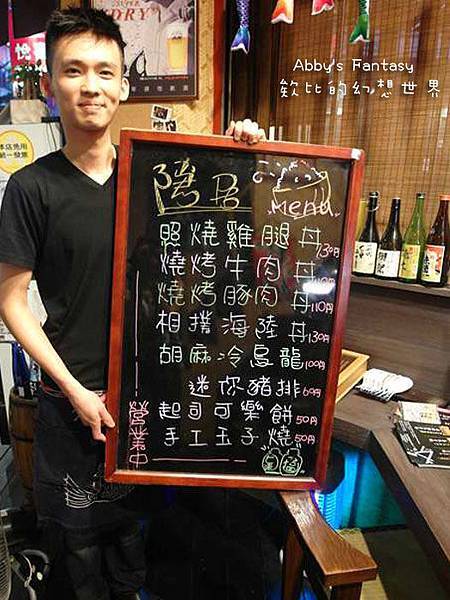 Abby's Fantasy
欸比的幻想世界
DRY
本店免用
統一發票
隱居
Menu
照燒雞腿丼 130円
燒烤牛肉丼
燒烤豚肉丼 110円
相撲海陸丼 130円
胡麻冷烏龍 100円
迷你豬排 69円
起司可樂餅 50円
手工玉子燒 50円
營業中